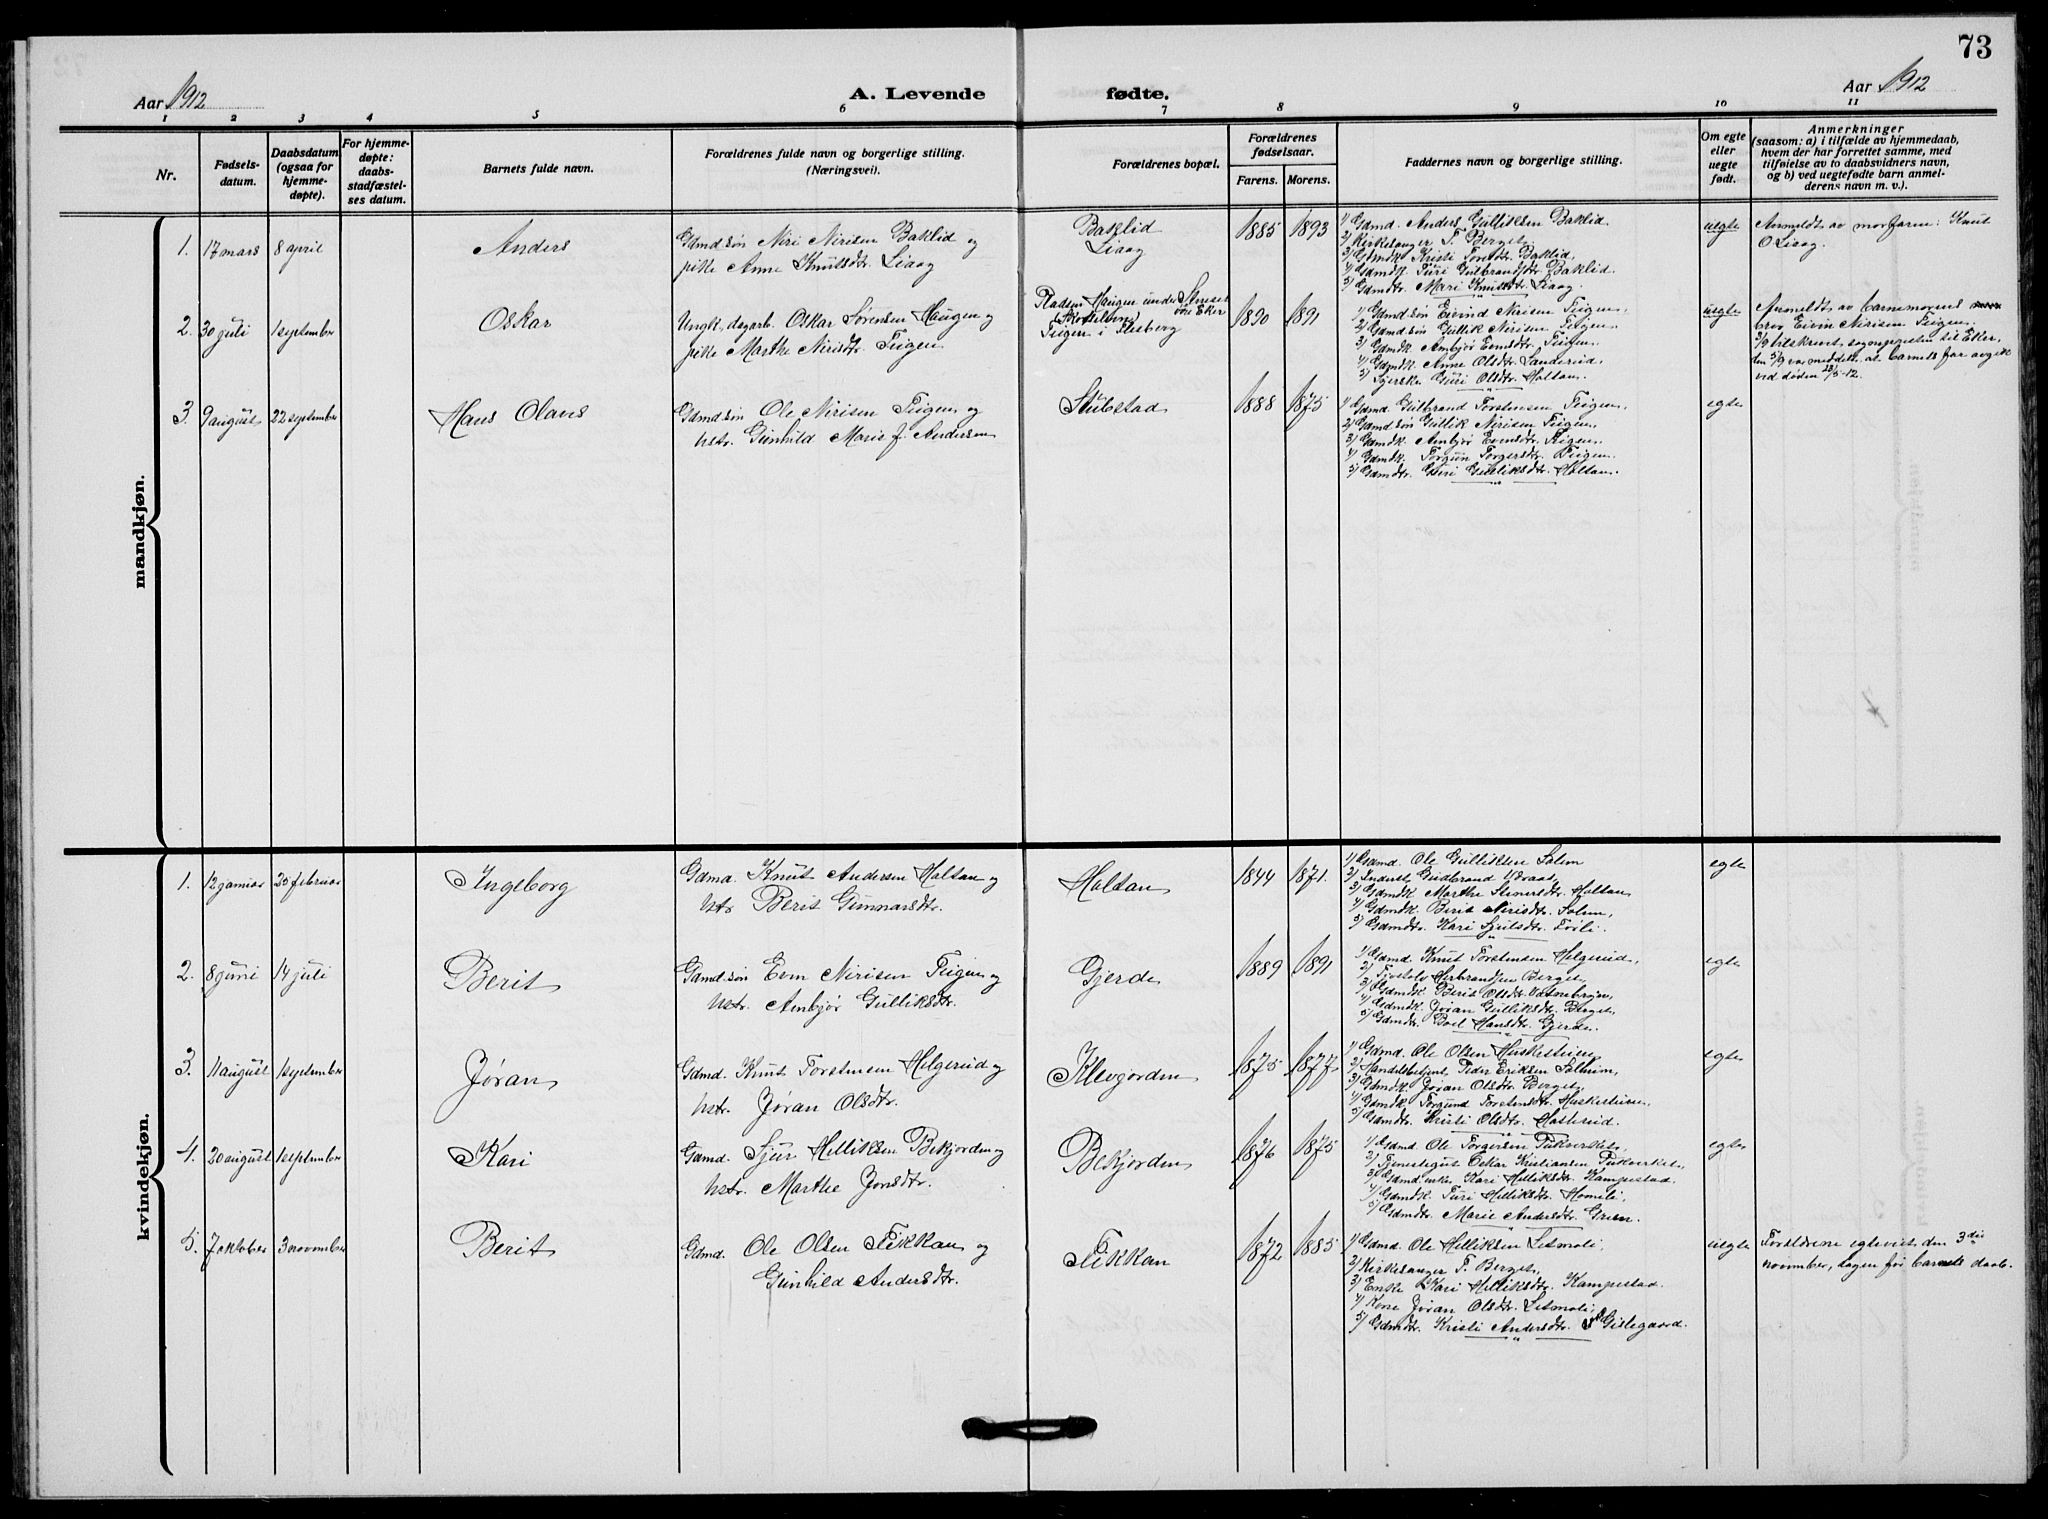 73
Aar 1912
A. Levende fødte.
Aar 1912
1 2 3 4 5 6 7 8 9 10 11
Nr.
Fødsels-
datum.
Daabsdatum
(ogsaa for
hjemme-
døpte).
For hjemme-
døpte:
daabs-
stadfæstel-
ses datum.
Barnets fulde navn.
Forældrenes fulde navn og borgerlige stilling.
(Næringsvei).
Forældrenes bopæl.
Forældrenes
fødselsaar.
Farens. Morens.
Faddernes navn og borgerlige stilling.
Om egte
eller
uegte
født.
Anmerkninger
(saasom: a) i tilfælde av hjemmedaab,
hvem der har forrettet samme, med
tilføielse av to daabsvidners navn,
og b) ved uegtefødte barn anmel-
derens navn m. v.).
mandkjøn.
1. 17 mars 8 april Anders
Gdmdsøn Niri Nirisen Baklid og
pike Anne Knutsdtr. Liaag
Baklid
Liaag
1885 1893
1) Gdmd. Anders Gulliksen Baklid.
2) Kirkesanger T. Berget,
3) Gdmdk Kristi Torsdtr. Baklid,
4) Gdmdk. Turi Gulbrandsdtr. Baklid.
5) Gdmdtr. Mari Knutsdtr. Liaag.
uegte
Anmeldt av morfaren: Knut
O. Liaag.
2. 30 juli 1 september Oskar
Ungk., dagarb. Oskar Sørensen Haugen og
pike Marthe Nirisdtr. Teigen
Pladsen Haugen under Stenset
(Skotselven) øvre Eker
Teigen i Flesberg
1890 1891
1) Gdmdsøn Eivind Nirisen Teigen,
2) Gdmdsøn Gullik Nirisen Teigen,
3) Gdmdk Ambjør Evensdtr. Teigen,
4) Gdmdk Anne Olsdtr. Sanderud,
5) Guri Olsdtr. Haltan.
uegte
Anmeldt av barnemorens
bror Eivin Nirisen Teigen.
3/9 tilskrevet sognepresten til Eker,
den 5/9 var meddelt, at barnets far avgik
ved døden 28/5-12.
3. 9 august 22 september Hans Olaus
Gdmdsøn Ole Nirisen Teigen og
hstr. Gunhild Marie f. Andersen
Stubstad
1888 1875
1) Gdmd. Gulbrand Torstensen Teigen,
2) Gdmdsøn Gullik Nirisen Teigen,
3) Gdmdk. Ambjør Evensdtr. Teigen,
4) Gdmdk. Torgun Torgersdtr. Teigen.
5) Gdmdtr. Guri Gulliksdtr. Haltan.
egte
kvindekjøn.
1. 12 januar 25 februar Ingeborg
Gdmd. Knut Andersen Haltan og
hstr. Berit Gunnarsdtr.
Haltan
1844 1871.
1) Gdmd. Ole Gulliksen Solem
2) Gudbrand
3) Gdmdk Marthe Steinersdtr. Haltan,
4) Gdmdk. Berit Nirisdtr. Solem,
5) Gdmdtr. Kari
egte
2. 8 juni 14 juli Berit
Gdmdsøn Even Nirisen Teigen og
hstr. Ambjør Gulliksdtr.
Gjerde
1889 1891
1) Gdmd Knut Torstensen Helgerud,
2) Tjostolv Herbrandsen Berget,
3) Gdmdk Berit Olsdtr. Vatnebryn,
4) Gdmdk. Jøran Gulliksdtr. Berget,
5) Gdmdtr. Boel Hansdtr. Gjerde.
egte
3. 11 august 1 september Jøran
Gdmd. Knut Torstensen Helgerud og
hstr. Jøran Olsdtr.
Klevgjorden
1875 1877
1) Gdmd. Ole Olsen Muskesteien
2) Handelsbetjent Peder Eriksen Solheim,
3) Gdmdk Jøran Olsdtr. Berget,
4) Gdmdk Torgund Torstensdtr.
5) Gdmdtr. Kristi Olsdtr.
egte
4. 20 august 1 september Kari
Gdmd. Sjur Helliksen Bekjorden og
hstr. Marthe Jonsdtr.
Bekjorden
1876 1875
1) Gdmd Ole Torgersen
2) Tjenestegut Oskar Kristiansen
3) Gdmd.enke Kari Helliksdtr. Kampestad.
4) Gdmdk Turi Helliksdtr. Homeli,
5) Gdmdtr. Marie Andersdtr. Green.
egte
5. 7 oktober 3 november Berit
Gdmd. Ole Olsen Fekkan og
Gunhild Andersdtr.
Fekkan
1872 1885
1) Gdmd Ole Helliksen Lismoli,
2) Kirkesanger T. Berget,
3) Enke Kari Helliksdtr. Kampestad.
4) Kone Jøran Olsdtr. Lismoli,
5) Gdmdtr. Kristi Andersdtr. Gislegaard.
uegte
Forældrene egteviet den 3die
november, dagen før barnets daab.